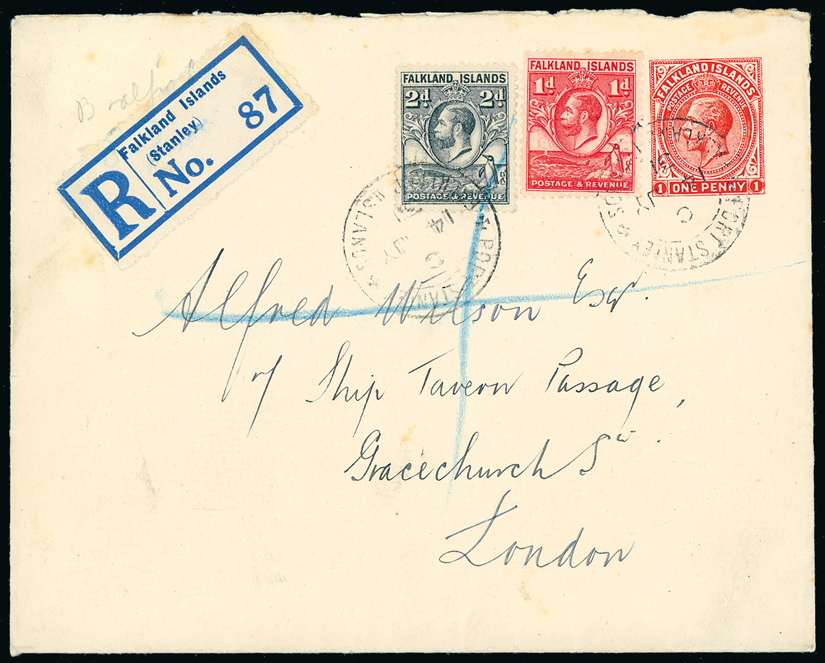 Falkland Islands
(Stanley)
R No. 87
FALKLAND ISLANDS
2d 2d
POSTAGE & REVENUE
FALKLAND ISLANDS
1d 1d
POSTAGE & REVENUE
FALKLAND ISLANDS
POSTAGE REVENUE
1 ONE PENNY 1
PORT STANLEY
14 JY
PORT STANLEY
14 JY
31
Alfred Wilson Esqr.
7 Ship Tavern Passage,
Gracechurch St.
London